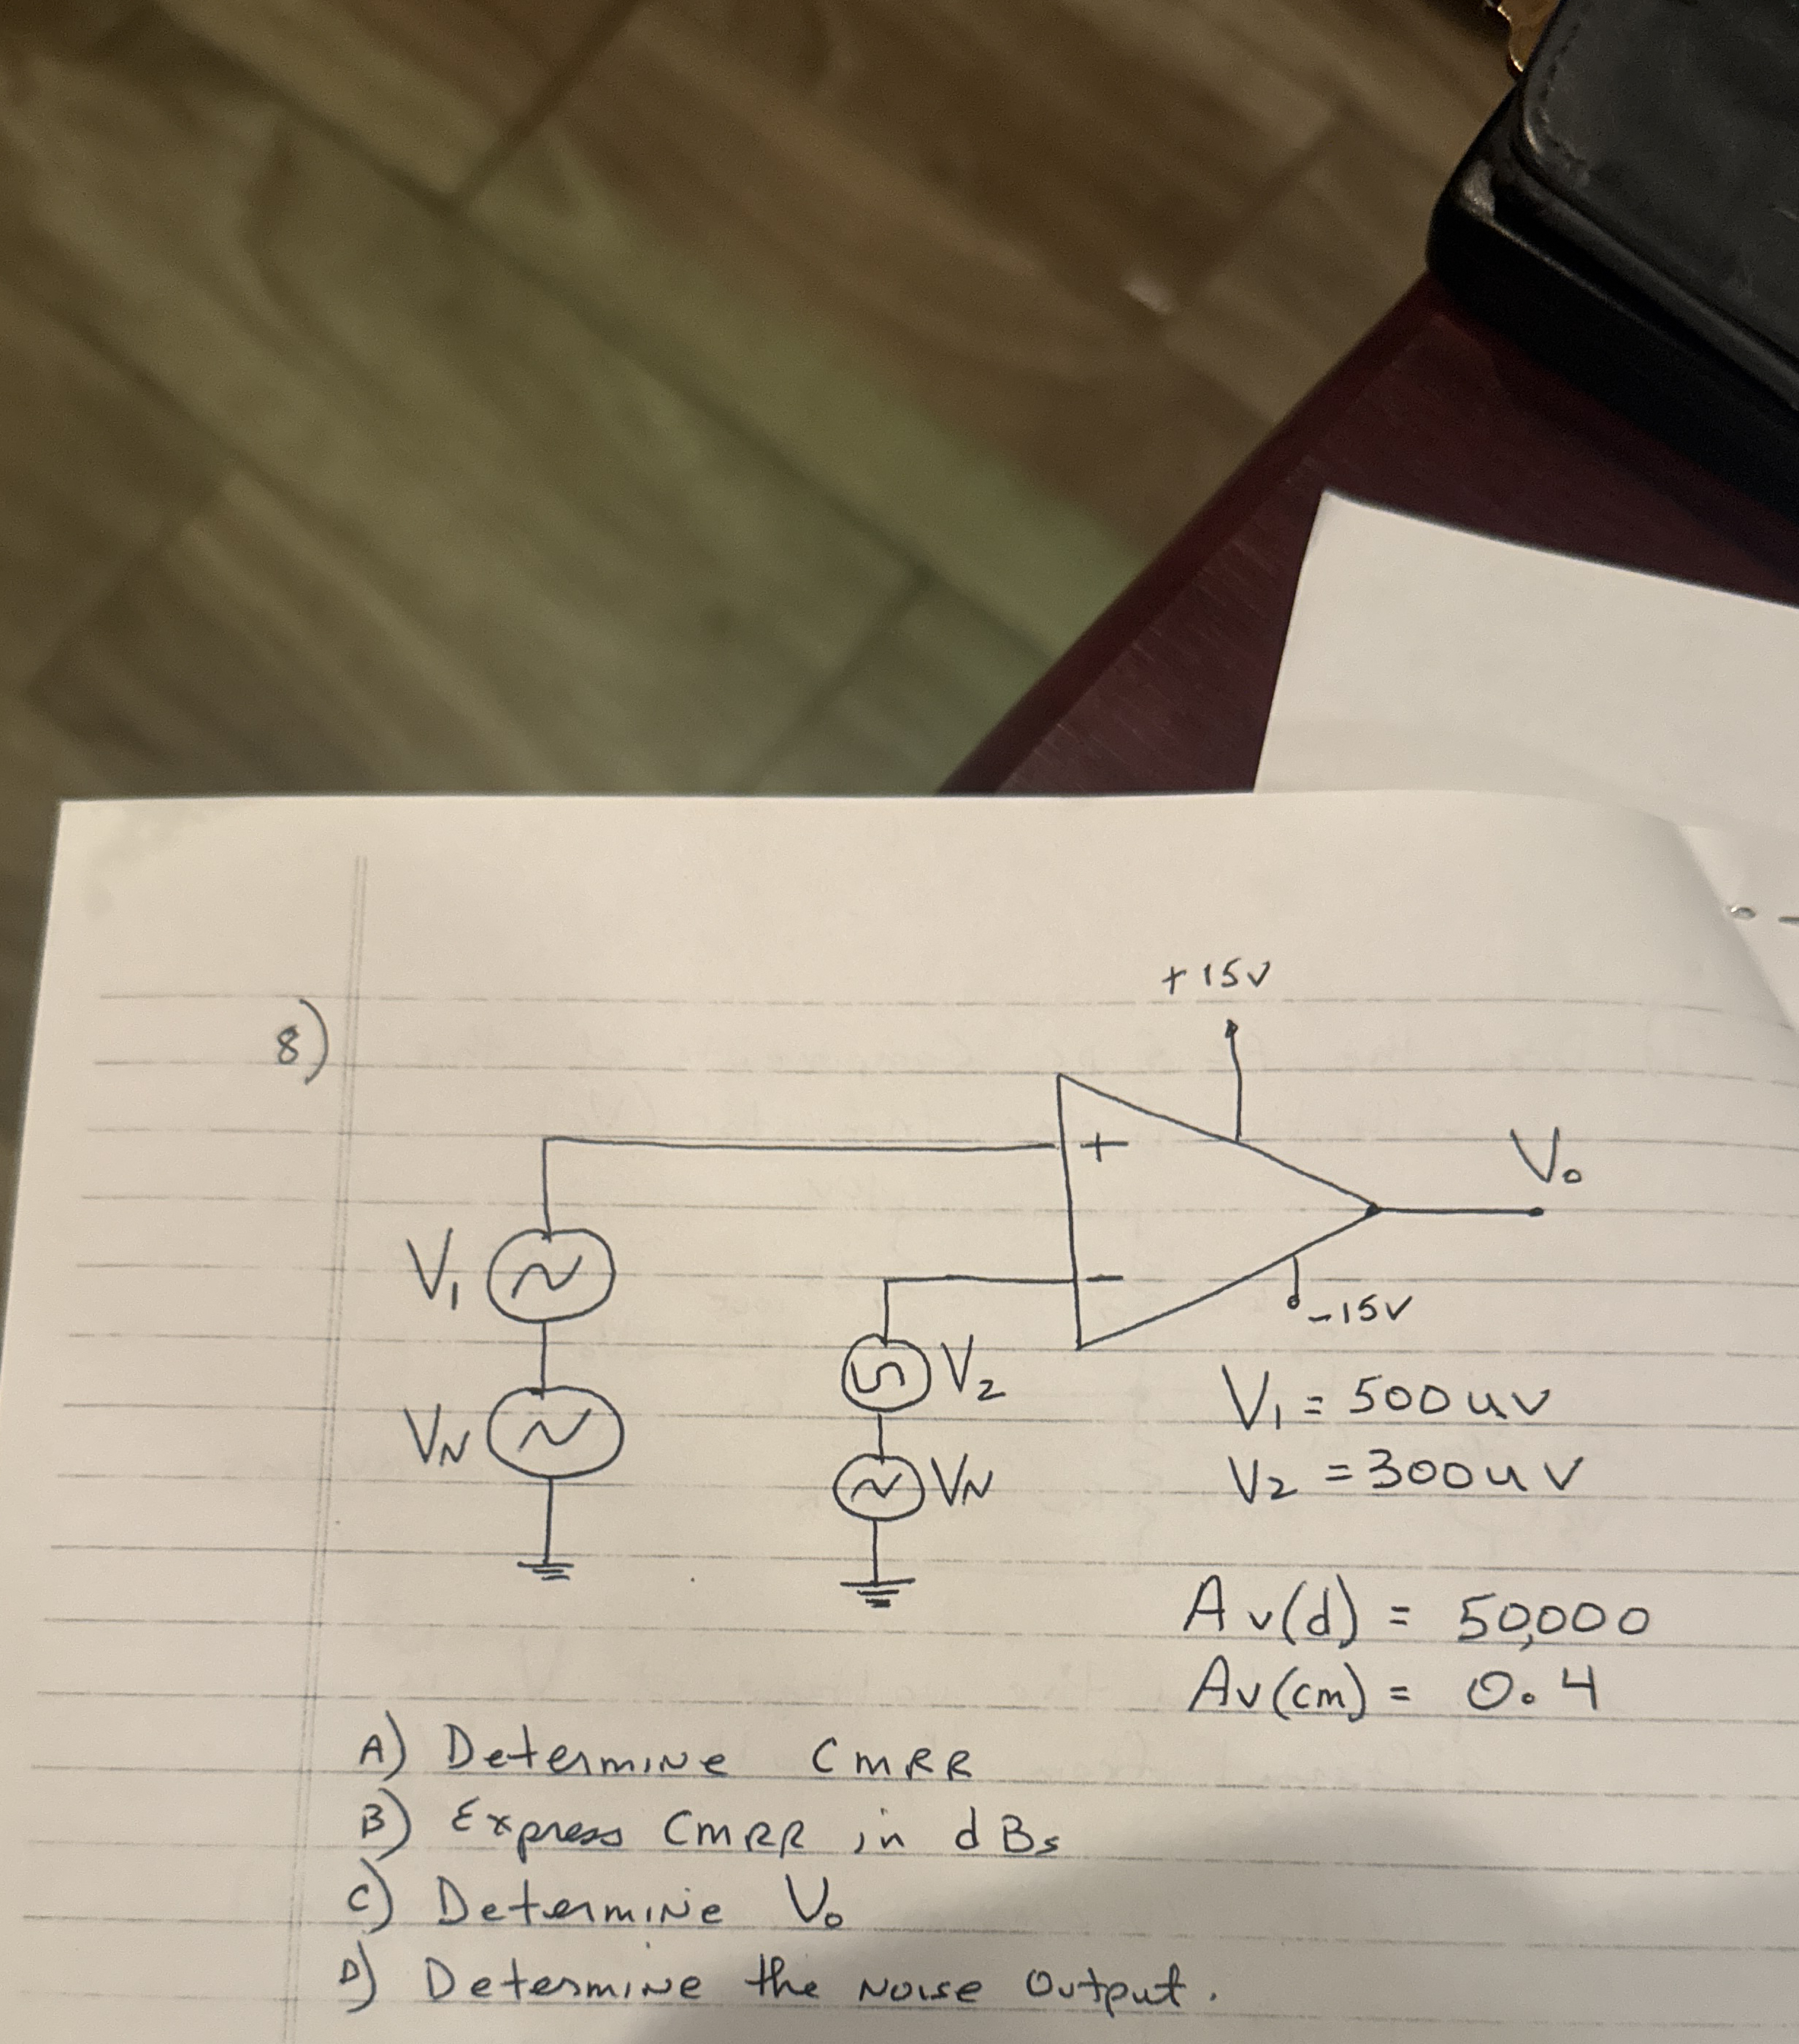 8)
+15V
+
V₀
V₁
-
-15V
V₂
V₁ = 500uV
VN
VN
V₂ = 300uV
Av(d) = 50,000
Av(cm) = 0.4
A) Determine CMRR
B) Express CMRR in dBs
C) Determine V₀
D) Determine the Noise Output.